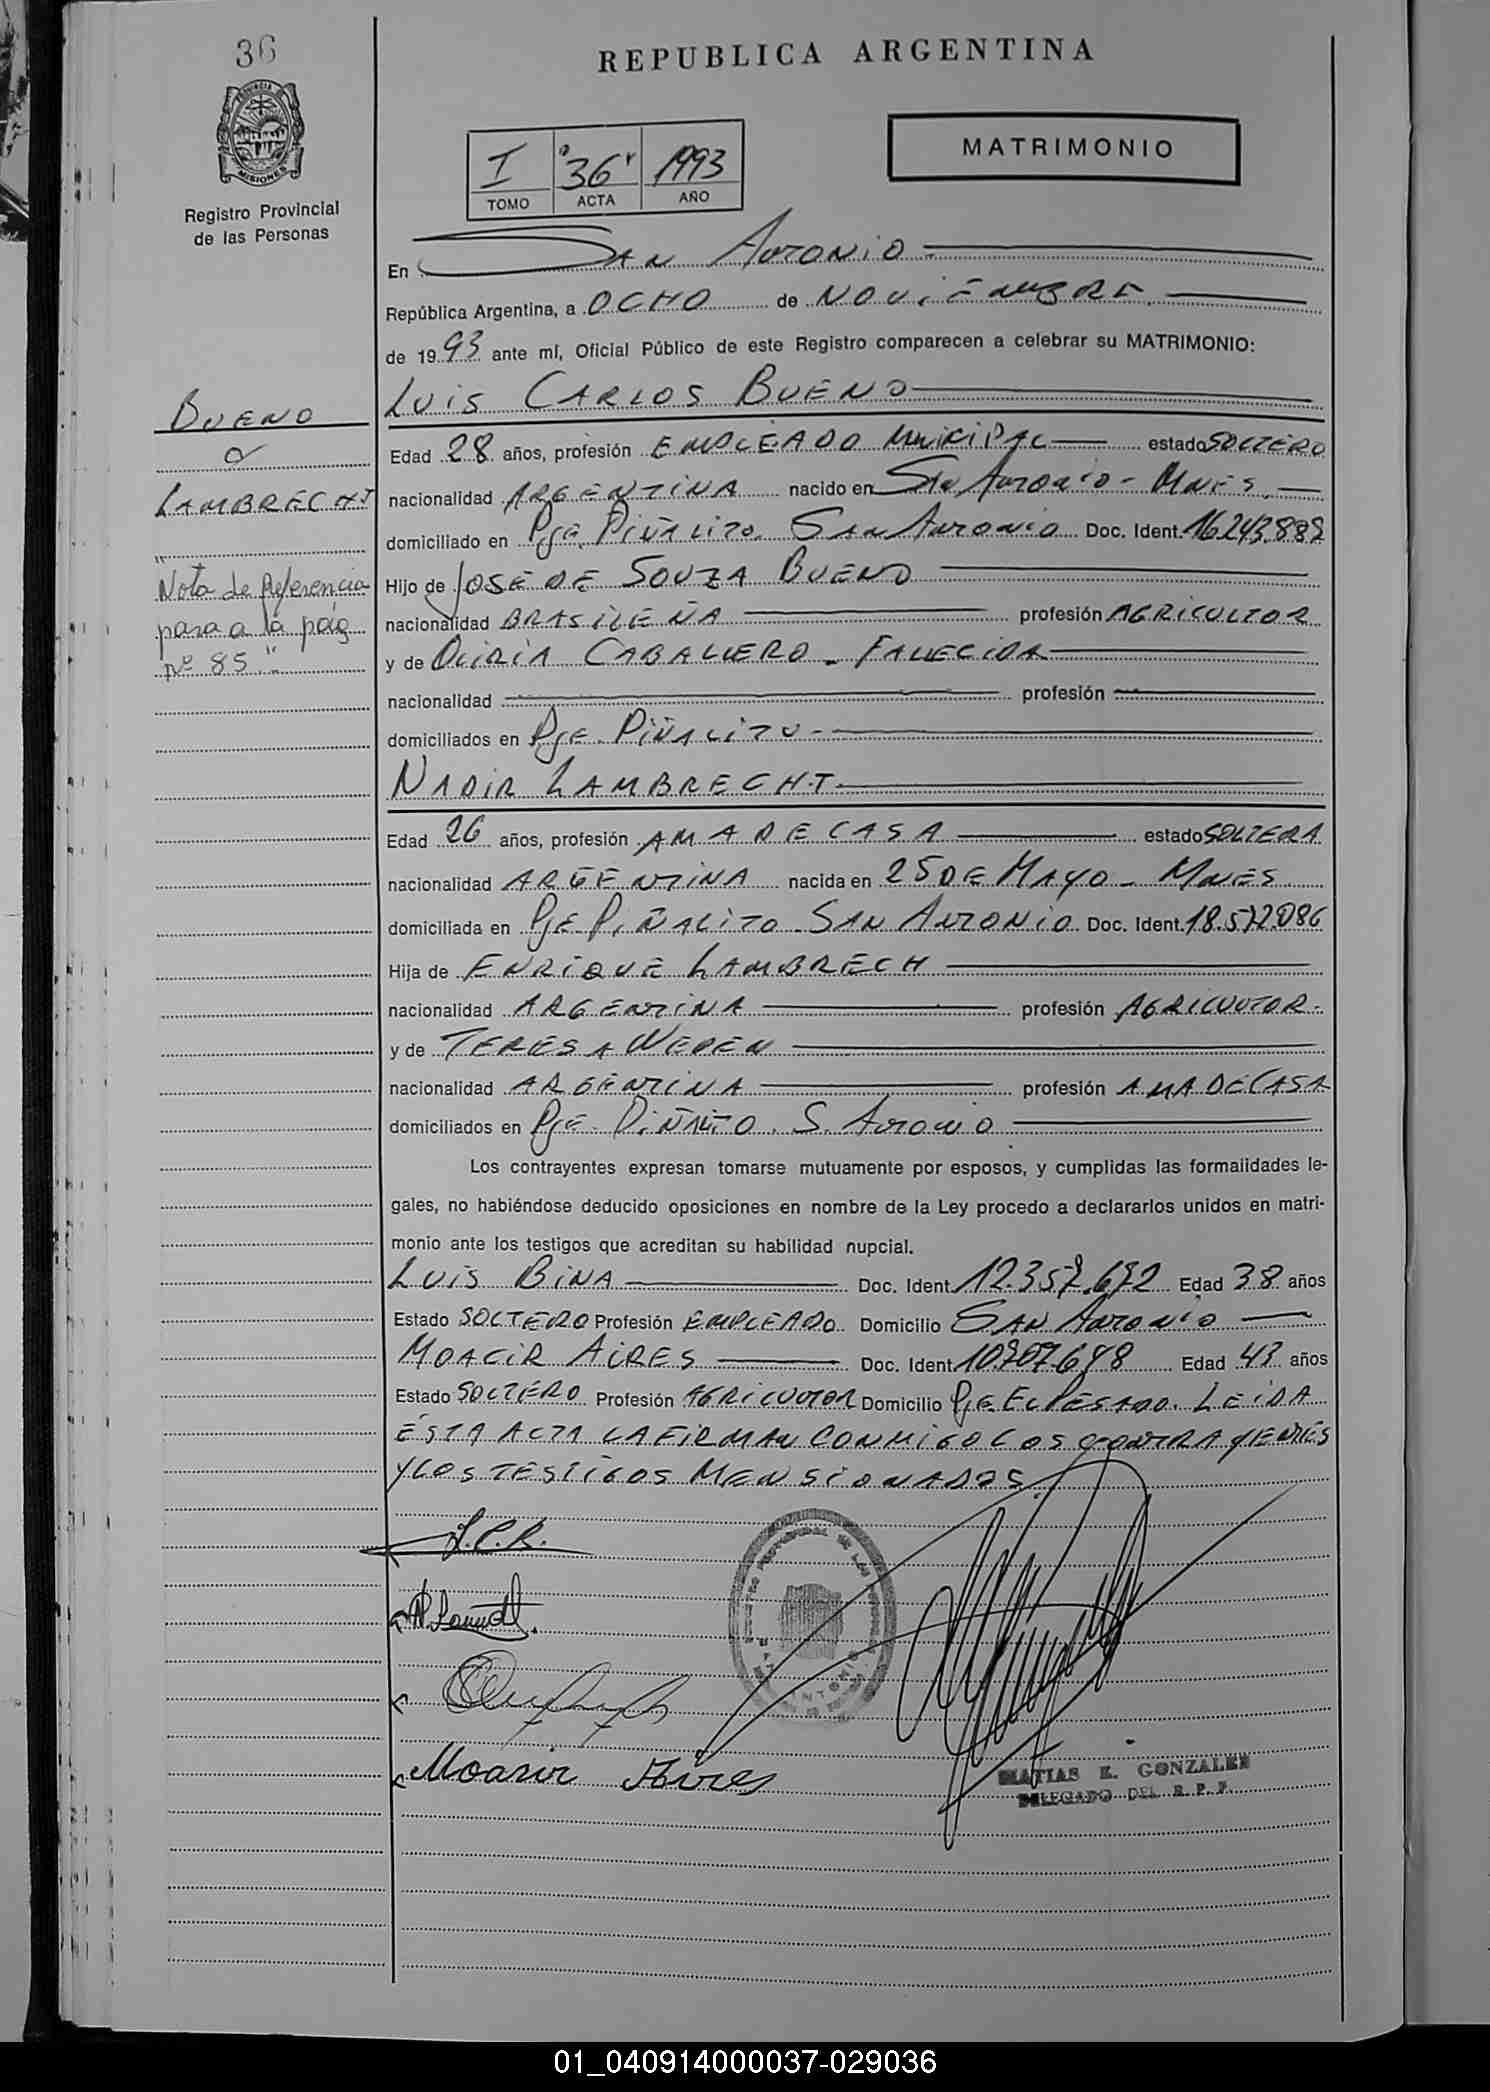 36
REPUBLICA ARGENTINA
PROVINCIA DE
MISIONES
Registro Provincial
de las Personas
I "36" 1993
TOMO ACTA AÑO
MATRIMONIO
En SAN ANTONIO
República Argentina, a OCHO de NOVIEMBRE
de 1993 ante mí, Oficial Público de este Registro comparecen a celebrar su MATRIMONIO:
LUIS CARLOS BUENO
BUENO
Edad 28 años, profesión EMPLEADO MUNICIPAL estado SOLTERO
LAMBRECHT
nacionalidad ARGENTINA nacido en SAN ANTONIO - MNES.
domiciliado en Pje. PIÑALITO. SAN ANTONIO Doc. Ident. 16.243.882
"Nota de Referencia
para a la pág
nº 85."
Hijo de JOSÉ DE SOUZA BUENO
nacionalidad BRASILEÑA profesión AGRICULTOR
y de CABALLERO - FALLECIDA
nacionalidad profesión
domiciliados en Pje. PIÑALITO -
NADIR LAMBRECHT
Edad 26 años, profesión AMA DE CASA estado SOLTERA
nacionalidad ARGENTINA nacida en 25 DE MAYO - MNES
domiciliada en Pje. PIÑALITO. SAN ANTONIO Doc. Ident. 18.572.086
Hija de ENRIQUE LAMBRECH
nacionalidad ARGENTINA profesión AGRICULTOR.
y de TERESA WEDEN
nacionalidad ARGENTINA profesión AMA DE CASA
domiciliados en Pje. PIÑALITO. S. ANTONIO
Los contrayentes expresan tomarse mutuamente por esposos, y cumplidas las formalidades le-
gales, no habiéndose deducido oposiciones en nombre de la Ley procedo a declararlos unidos en matri-
monio ante los testigos que acreditan su habilidad nupcial.
LUIS BINA Doc. Ident. 12.357.672 Edad 38 años
Estado SOLTERO Profesión EMPLEADO Domicilio SAN ANTONIO
MOACIR AIRES Doc. Ident. 10.907.698 Edad 43 años
Estado SOLTERO Profesión AGRICULTOR Domicilio Pje. EL PESADO. LEIDA
ÉSTA ACTA LA FIRMAN CONMIGO LOS CONTRAYENTES
Y LOS TESTIGOS MENSIONADOS.
L.C.B.
Moasir Aires
MATIAS E. GONZALEZ
DELEGADO DEL R. P. P.
01_040914000037-029036